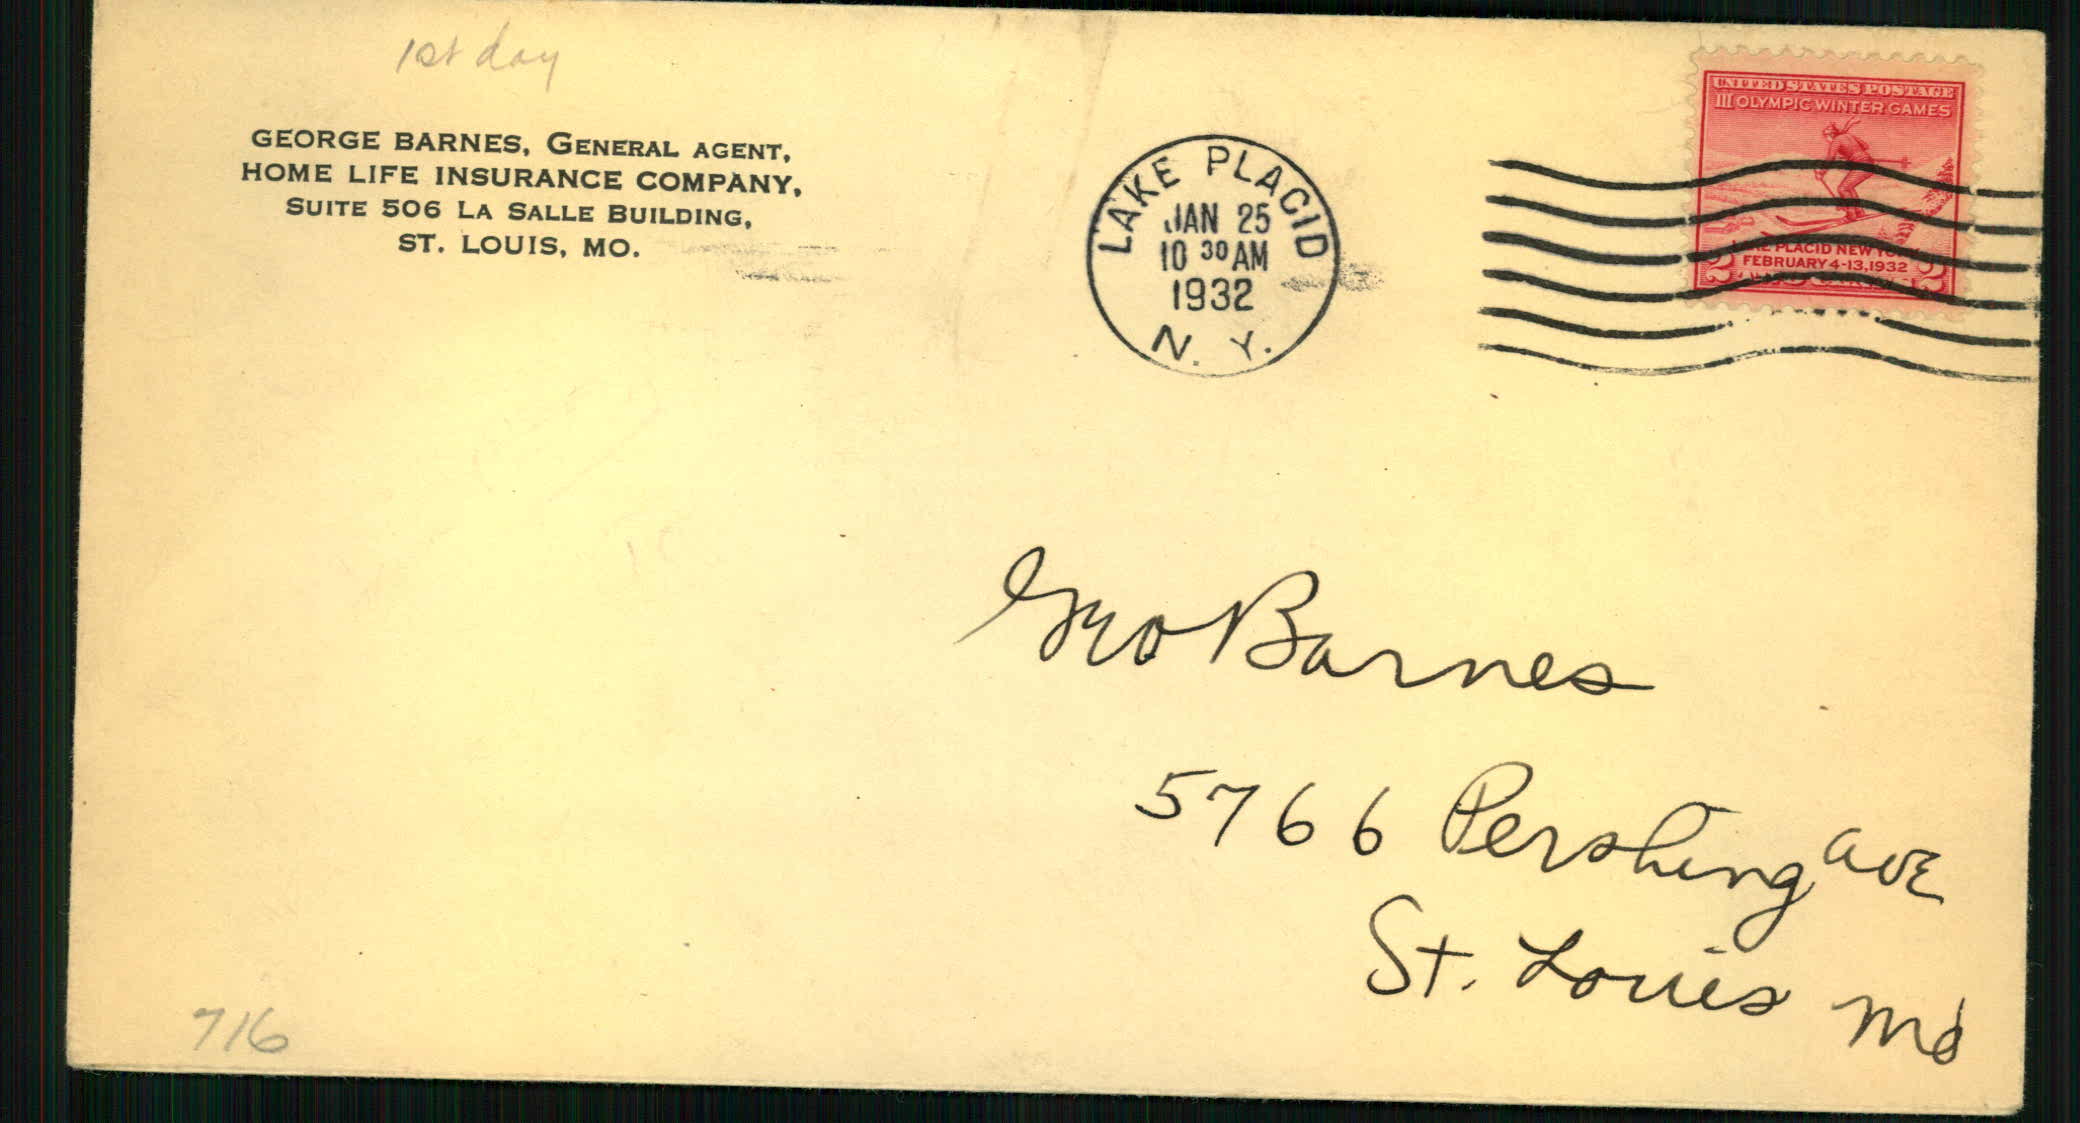 1st day
GEORGE BARNES, GENERAL AGENT,
HOME LIFE INSURANCE COMPANY,
SUITE 506 LA SALLE BUILDING,
ST. LOUIS, MO.
LAKE PLACID
JAN 25
10 30 AM
1932
N. Y.
UNITED STATES POSTAGE
III OLYMPIC WINTER GAMES
LAKE PLACID NEW YORK
FEBRUARY 4-13, 1932
2 2
Geo Barnes
5766 Pershing AVE
St. Louis Mo
716